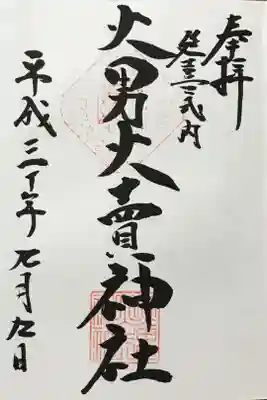 奉拝
延喜式内
火男火賣神社
平成三十年 月九日